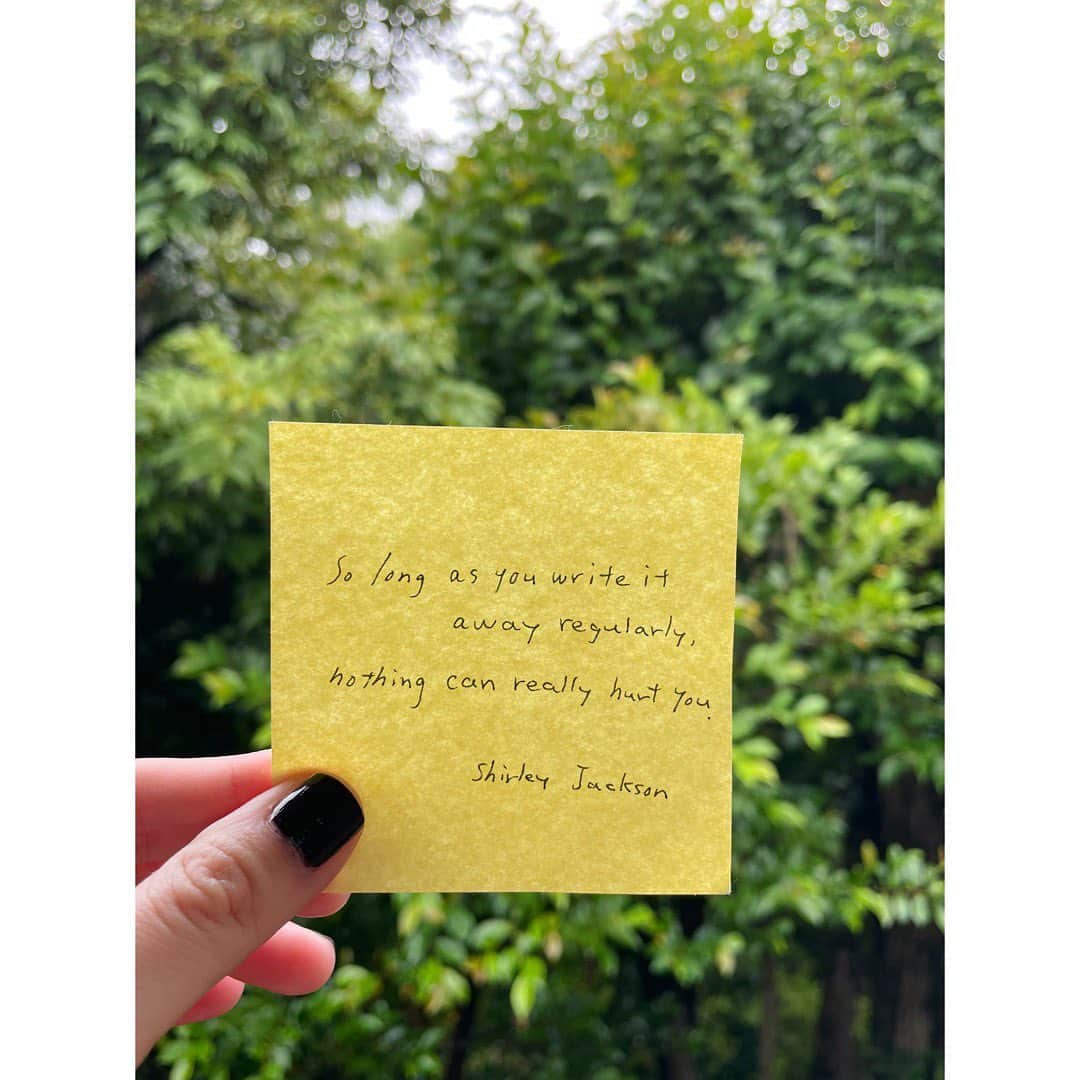 So long as you write it
away regularly,
nothing can really hurt you.
Shirley Jackson